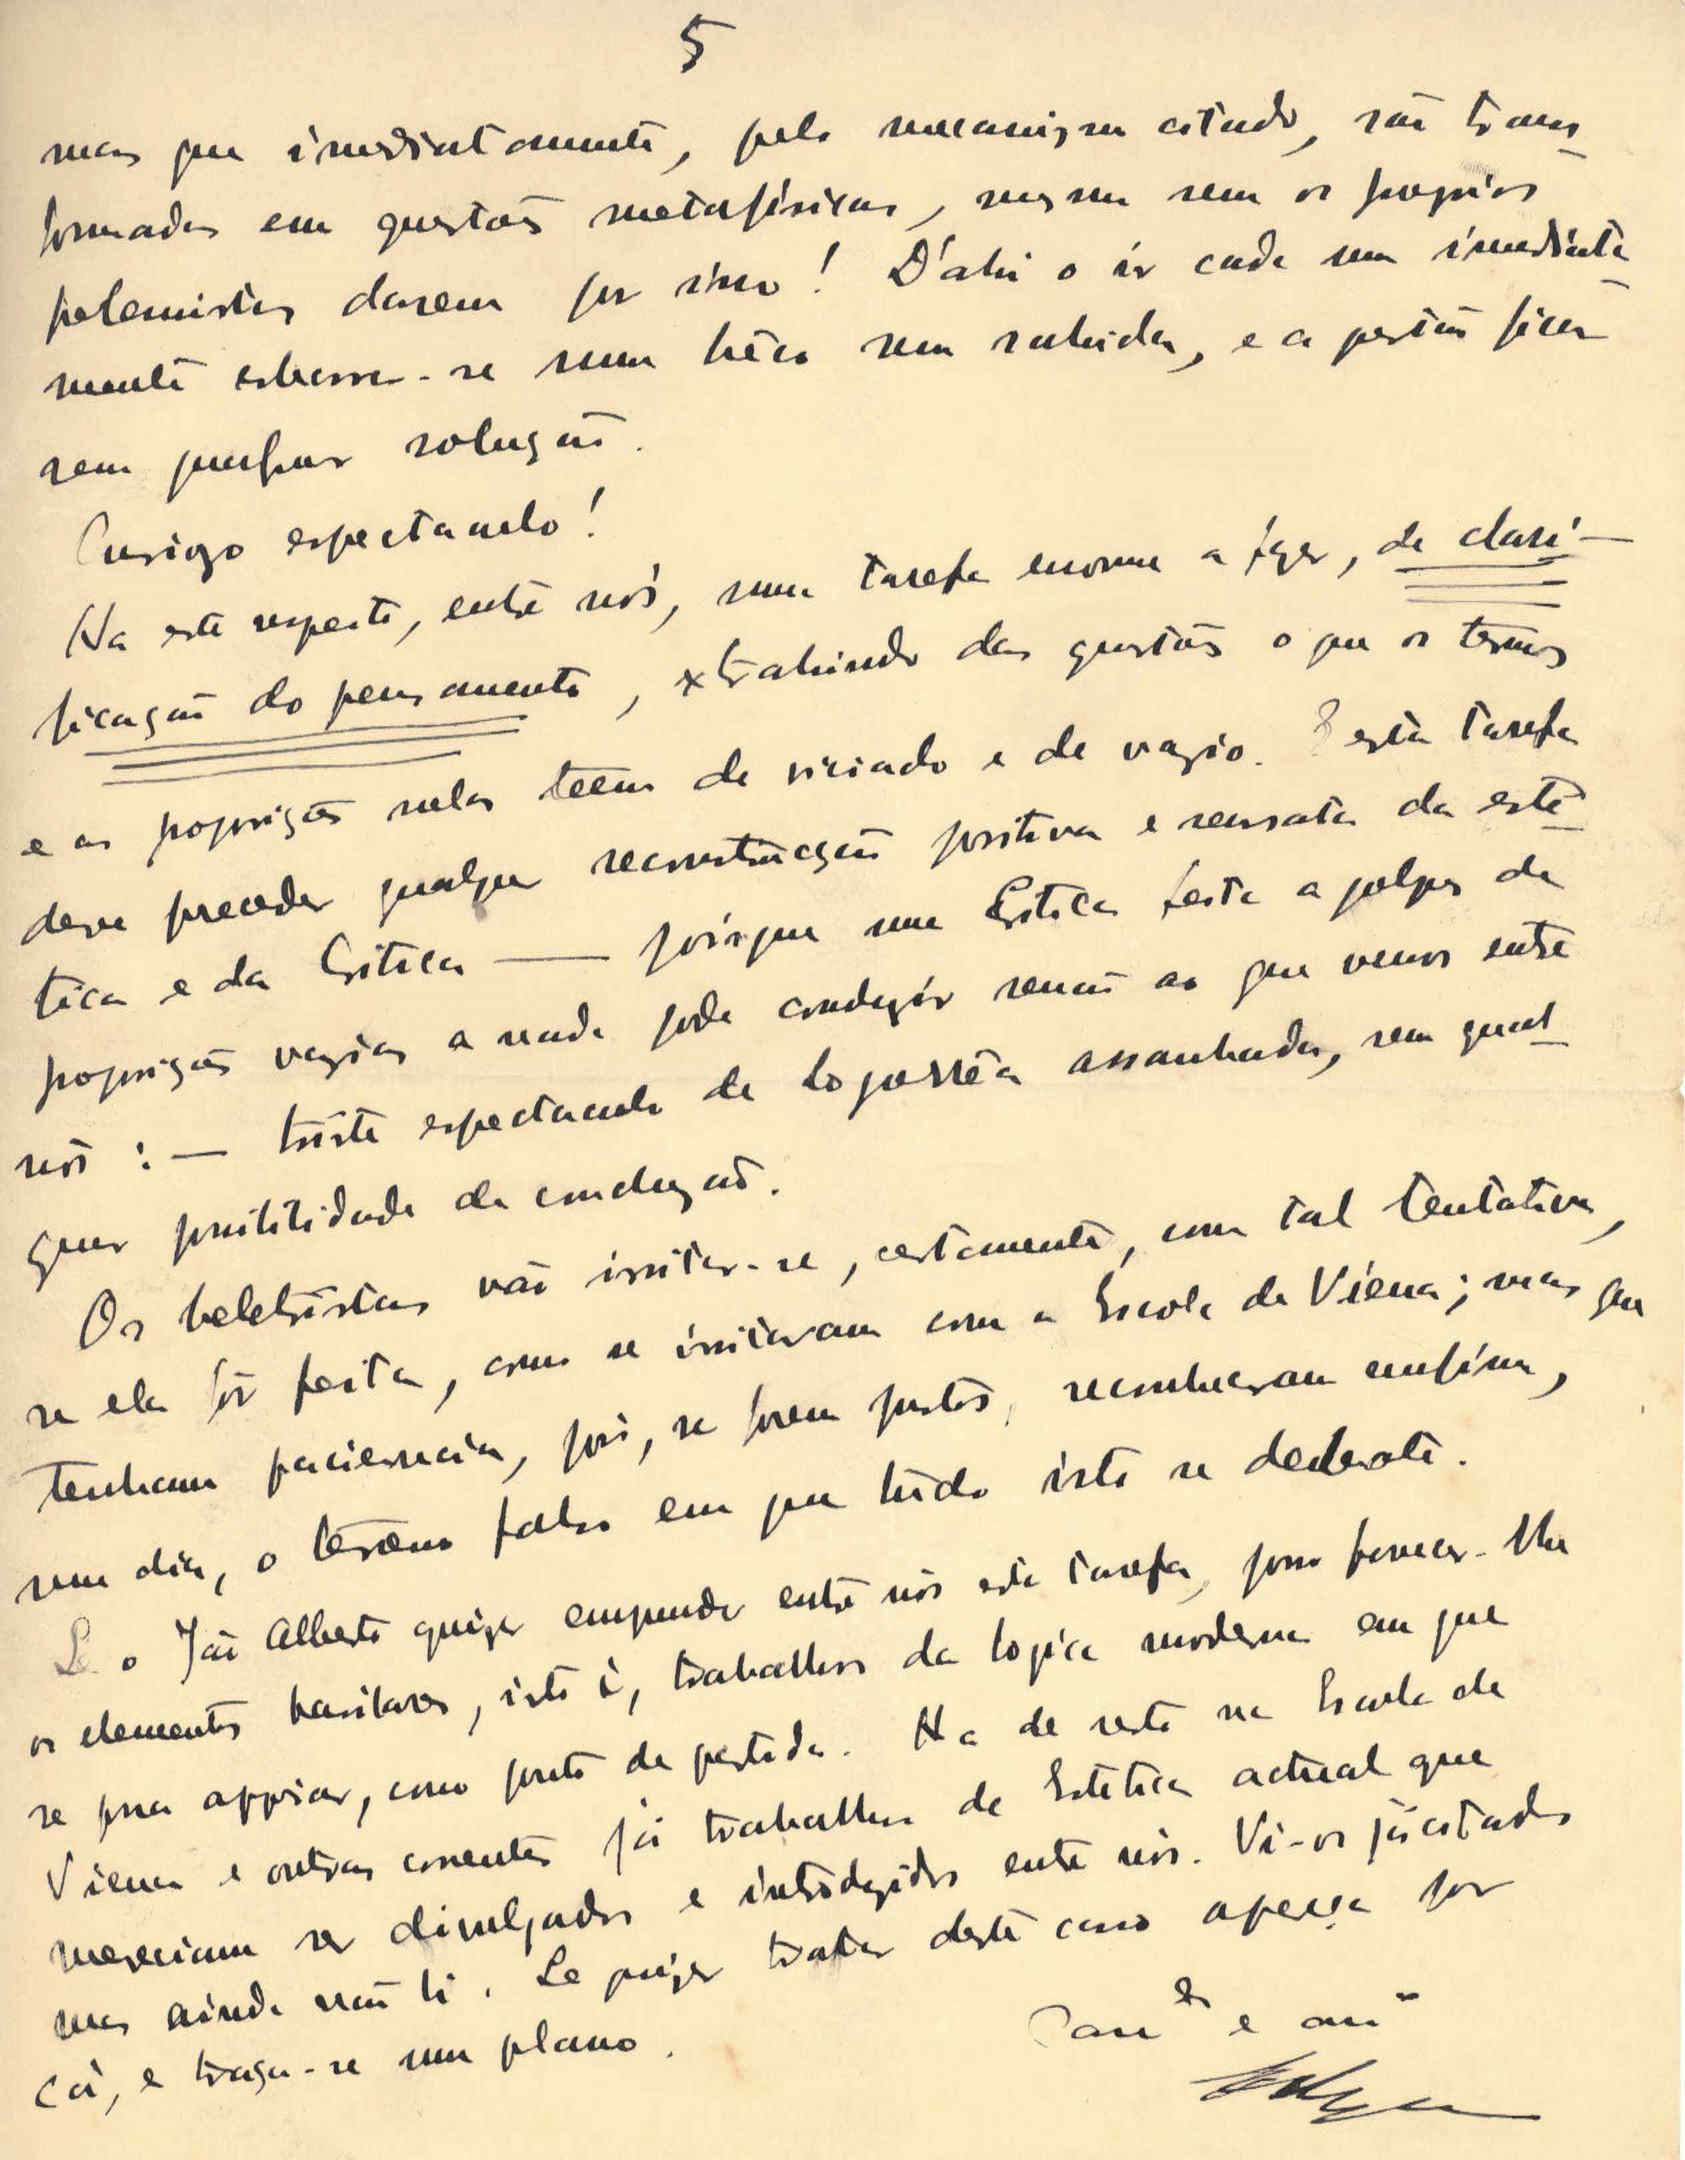 5
mas que imediatamente, pelo mecanismo citado, são trans-
formadas em questões metafisicas, mesmo sem os proprios
polemistas darem por isso! D'ahi o ir cada um imediata-
mente esbarrar-se num bêco sem sahida, e a questão ficar
sem qualquer solução.
Curioso espectaculo!
Ha este respeito, entre nós, uma tarefa enorme a fazer, de clari-
ficação do pensamento, extrahindo das questões o que os termos
e as proposições nelas teem de viciado e de vazio. E esta tarefa
deve preceder qualquer reconstrucção positiva e sensata da esté-
tica e da Critica — pois que uma Critica feita a golpes de
proposições vazias a nada pode conduzir senão ao que vemos entre
nós: — triste espectaculo de logorrêa assanhada, sem qual-
quer possibilidade de conclusão.
Os beletristas vão irritar-se, certamente, com tal tentativa,
se ela fôr feita, como se irritaram com a Escola de Viena; mas que
tenham paciencia, pois, se forem justos, reconheceram emfim,
um dia, o terreno falso em que tudo isto se debate.
Se o João Alberto quizer empreender entre nós esta tarefa, posso fornecer-lhe
os elementos basilares, isto é, trabalhos da logica moderna em que
se possa appoiar, como ponto de partida. Ha de resto na Escola de
Viena e outras correntes já trabalhos de Estetica actual que
mereciam ser divulgados e introduzidos entre nós. Vi-os já citados
mas ainda não li. Se quizer tratar deste caso apareça por
cá, e traça-se um plano.
Cam.da e am.o